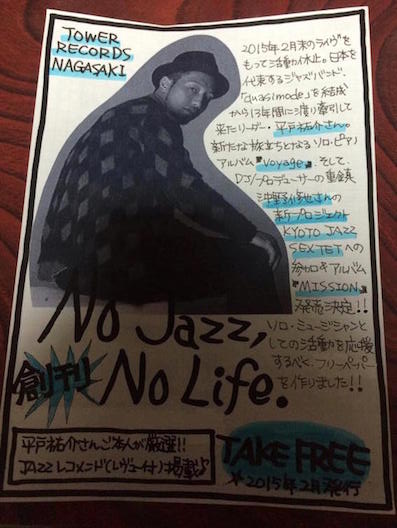 TOWER
RECORDS
NAGASAKI
2015年2月末のライヴを
もって活動休止。日本を
代表するジャズバンド、
「quasimode」を結成
から13年間に渡り牽引して
来たリーダー・平戸祐介さん。
新たな旅立ちとなるソロ・ピアノ
アルバム『Voyage』そして、
DJ/プロデューサーの重鎮
沖野修也さんの
新プロジェクト
KYOTO JAZZ
SEXTETへの
参加のアルバム
『MISSION』
発売決定!!
ソロ・ミュージシャンと
しての活動を応援
するべく、フリーペーパー
を作りました!!
No Jazz,
No Life.
創刊
平戸祐介さんご本人が厳選!!
JAZZレコメンド(レヴュー付)掲載♪
TAKE FREE
★2015年2月発行